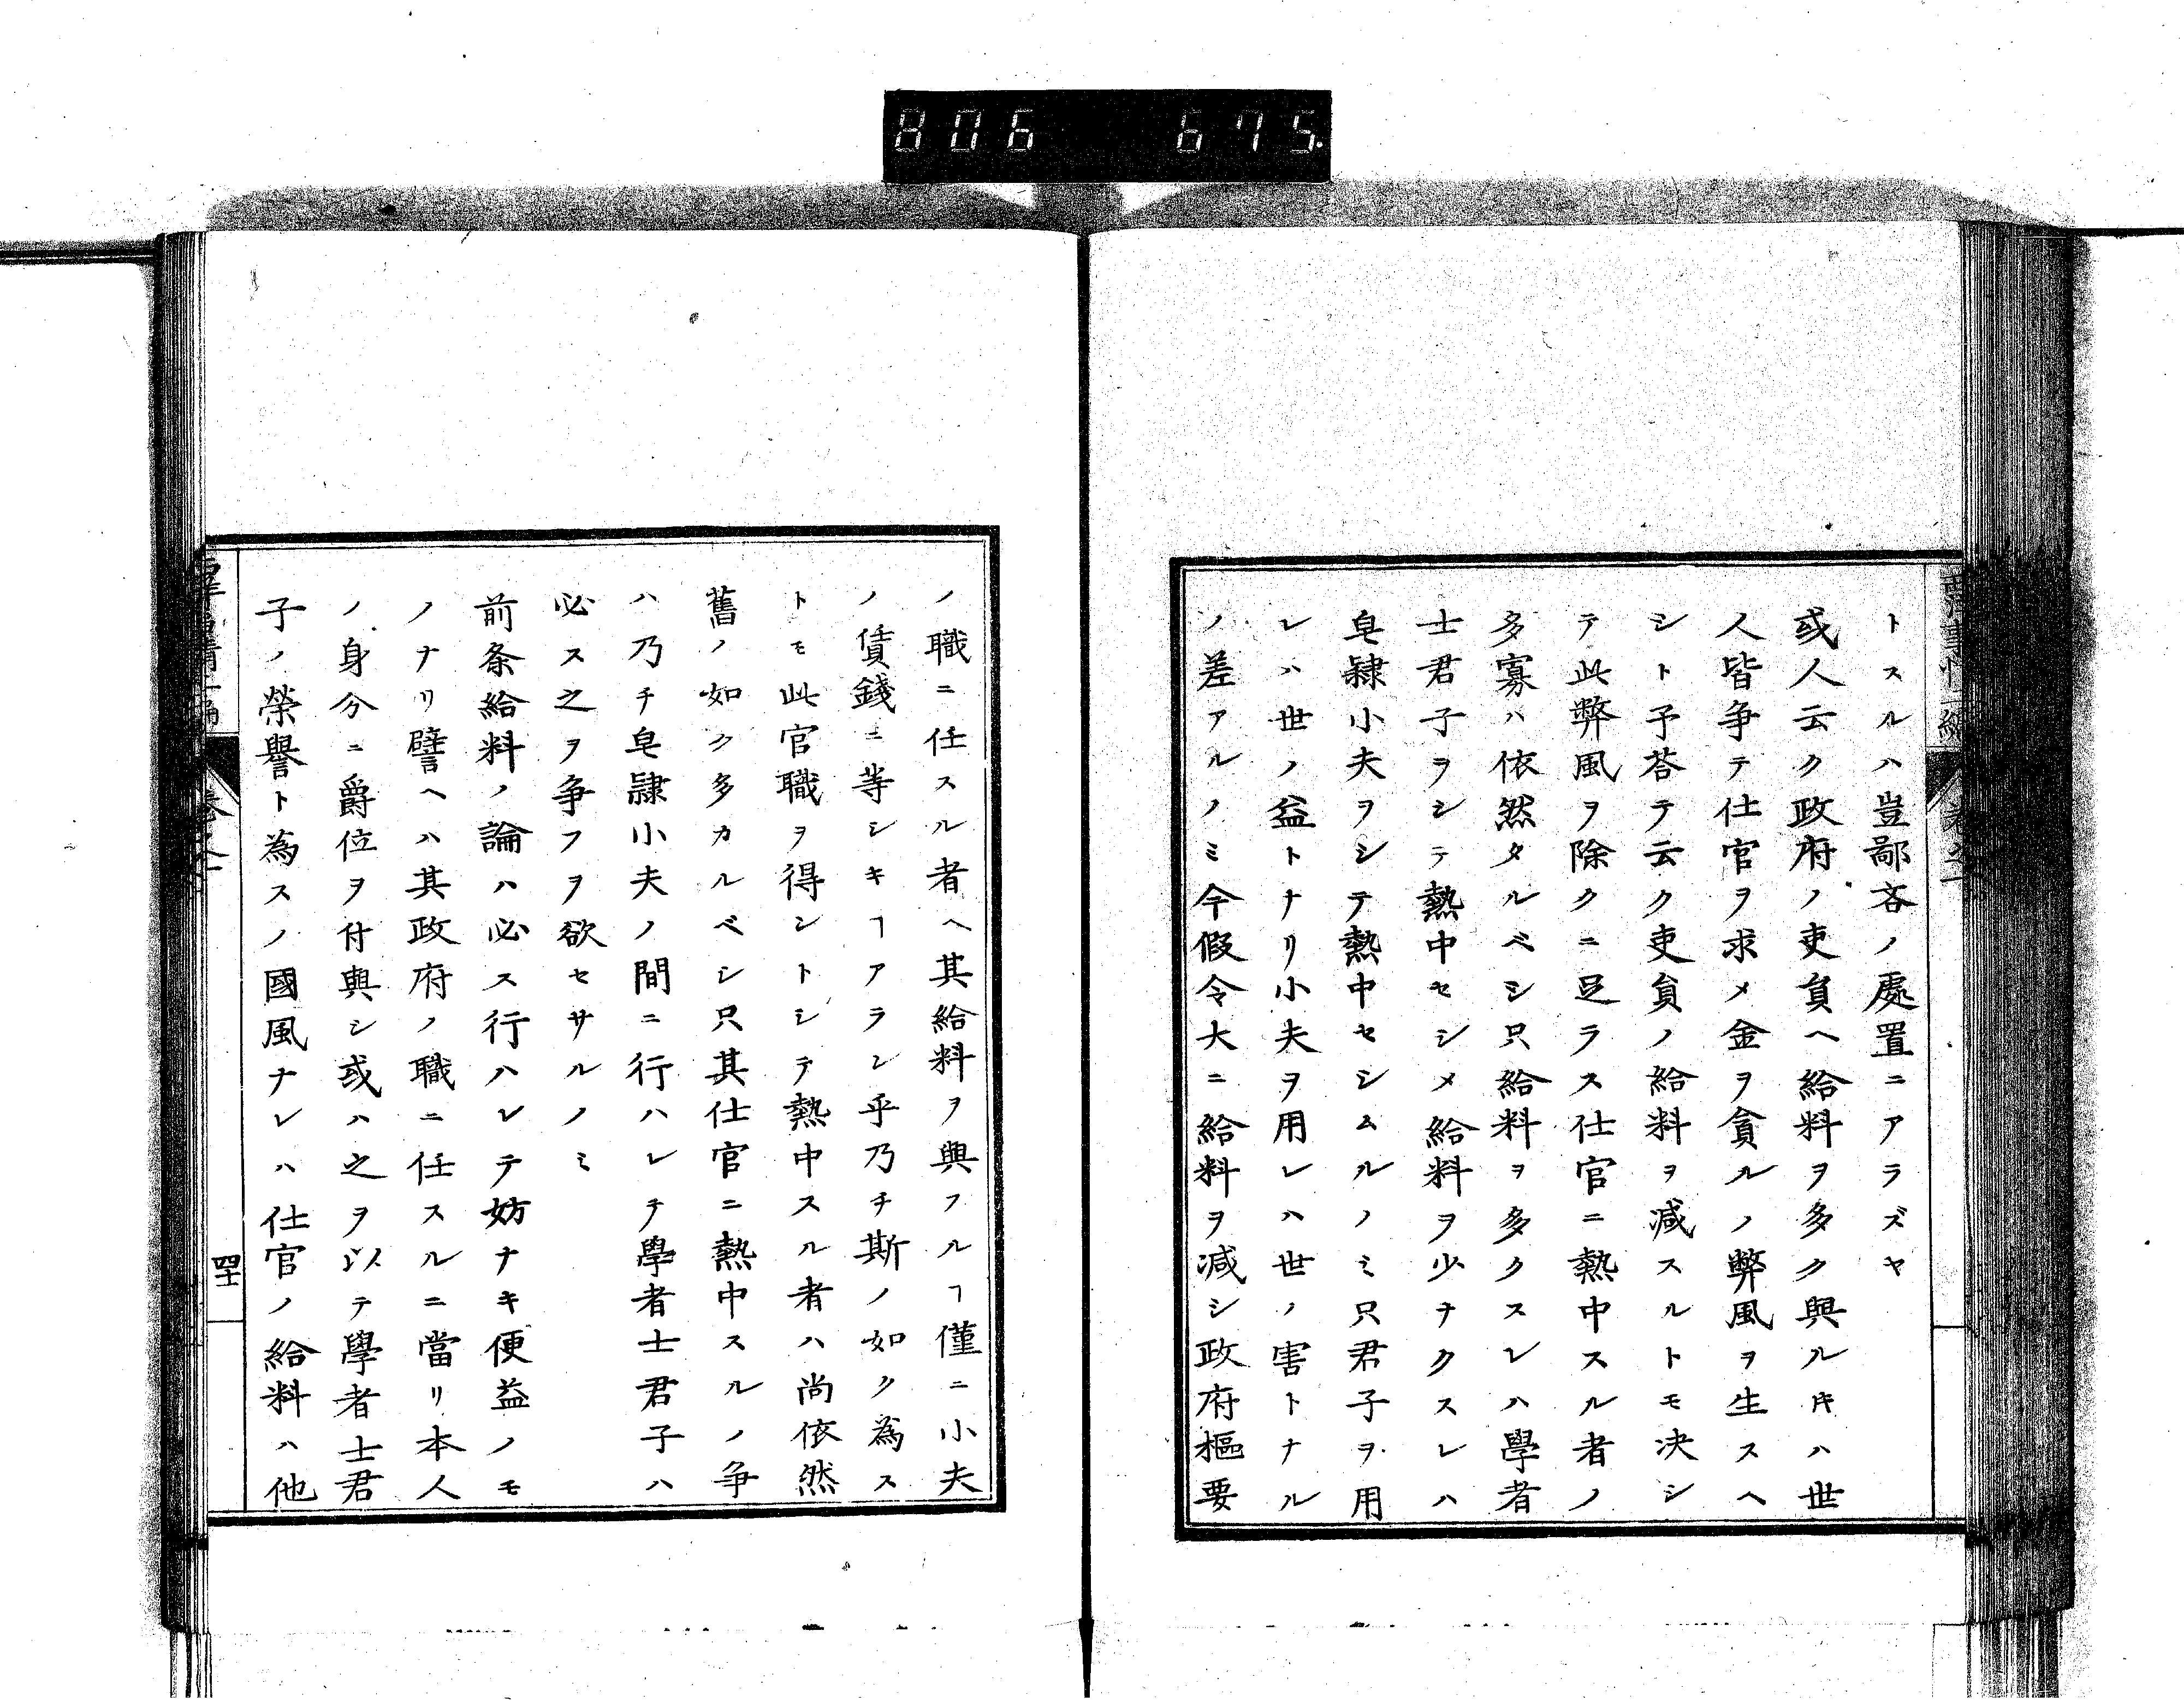 806 675.
トスルハ豈鄙吝ノ處置ニアラズヤ
或人云ク政府ノ吏員ヘ給料ヲ多ク與ルキハ世
人皆争テ仕官ヲ求メ金ヲ貪ルノ弊風ヲ生スヘ
シト予荅テ云ク吏員ノ給料ヲ減スルトモ决シ
テ此弊風ヲ除クニ足ラス仕官ニ熱中スル者ノ
多寡ハ依然タルベシ只給料ヲ多クスレハ學者
士君子ヲシテ熱中セシメ給料ヲ少ナクスレハ
皂隷小夫ヲシテ熱中セシムルノミ只君子ヲ用
レハ世ノ益トナリ小夫ヲ用レハ世ノ害トナル
ノ差アルノミ今假令大ニ給料ヲ減シ政府樞要
ノ職ニ任スル者ヘ其給料ヲ與フルヿ僅ニ小夫
ノ賃錢ニ等シキヿアラン乎乃チ斯ノ如ク為ス
トモ此官職ヲ得ントシテ熱中スル者ハ尚依然
舊ノ如ク多カルベシ只其仕官ニ熱中スルノ争
ハ乃チ皂隷小夫ノ間ニ行ハレテ學者士君子ハ
必ス之ヲ争フヲ欲セサルノミ
前条給料ノ論ハ必ス行ハレテ妨ナキ便益ノモ
ノナリ譬ヘハ其政府ノ職ニ任スルニ當リ本人
ノ身分ニ爵位ヲ付與シ或ハ之ヲ以テ學者士君
子ノ榮譽ト為スノ國風ナレハ仕官ノ給料ハ他